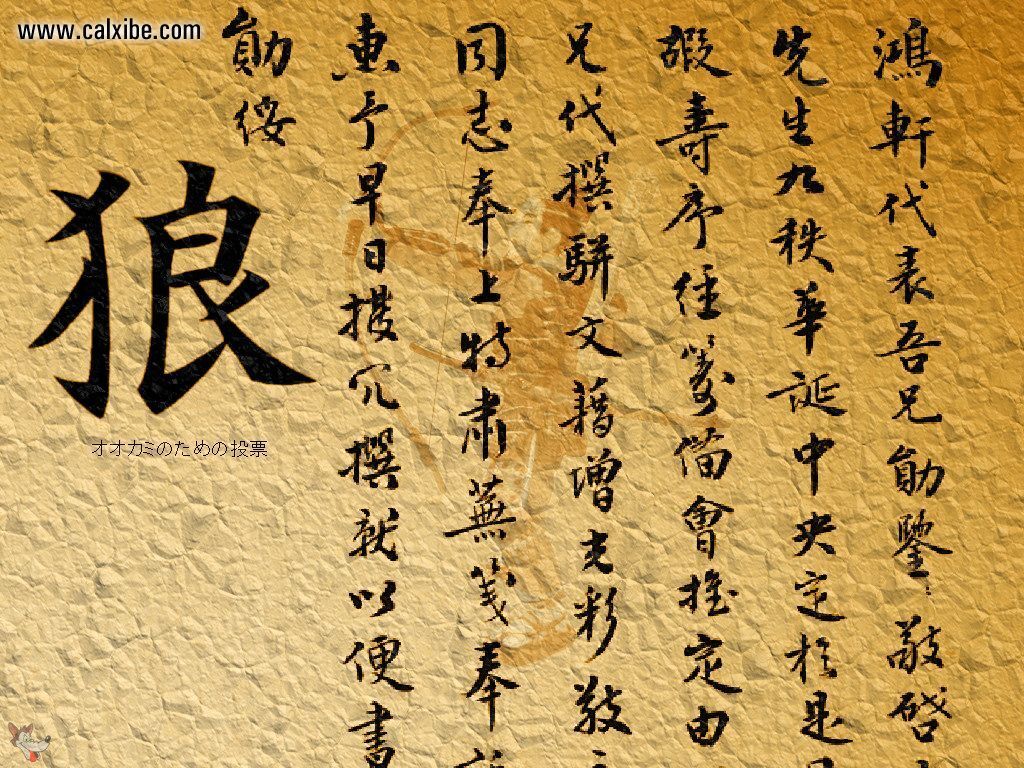 www.calxibe.com
鴻軒代表吾兄勛鑒：敬啓
先生九秩華誕中央定於是
嘏壽序經籌備會推定由
兄代撰駢文藉增光彩敬
同志奉上特肅蕪箋奉
惠予早日撥冗撰就以便書
勛綏
狼
オオカミのための投票